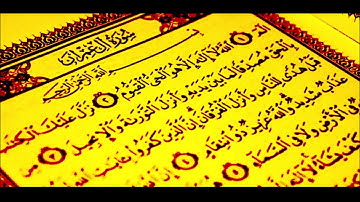 سُورَةُ آلِ عِمْرَان
بِسْمِ اللَّهِ الرَّحْمَٰنِ الرَّحِيمِ
الٓمٓ ١ اللَّهُ لَا إِلَٰهَ إِلَّا هُوَ الْحَيُّ الْقَيُّومُ ٢ نَزَّلَ عَلَيْكَ الْكِتَٰبَ
بِالْحَقِّ مُصَدِّقًا لِّمَا بَيْنَ يَدَيْهِ وَأَنزَلَ التَّوْرَىٰةَ وَالْإِنجِيلَ ٣
هُدًى لِّلنَّاسِ وَأَنزَلَ الْفُرْقَانَ إِنَّ الَّذِينَ كَفَرُوا بِـَٔايَٰتِ اللَّهِ
عَذَابٌ شَدِيدٌ وَاللَّهُ عَزِيزٌ ذُو انتِقَامٍ ٤ إِنَّ
الْأَرْضِ وَلَا فِي السَّمَاءِ ٥